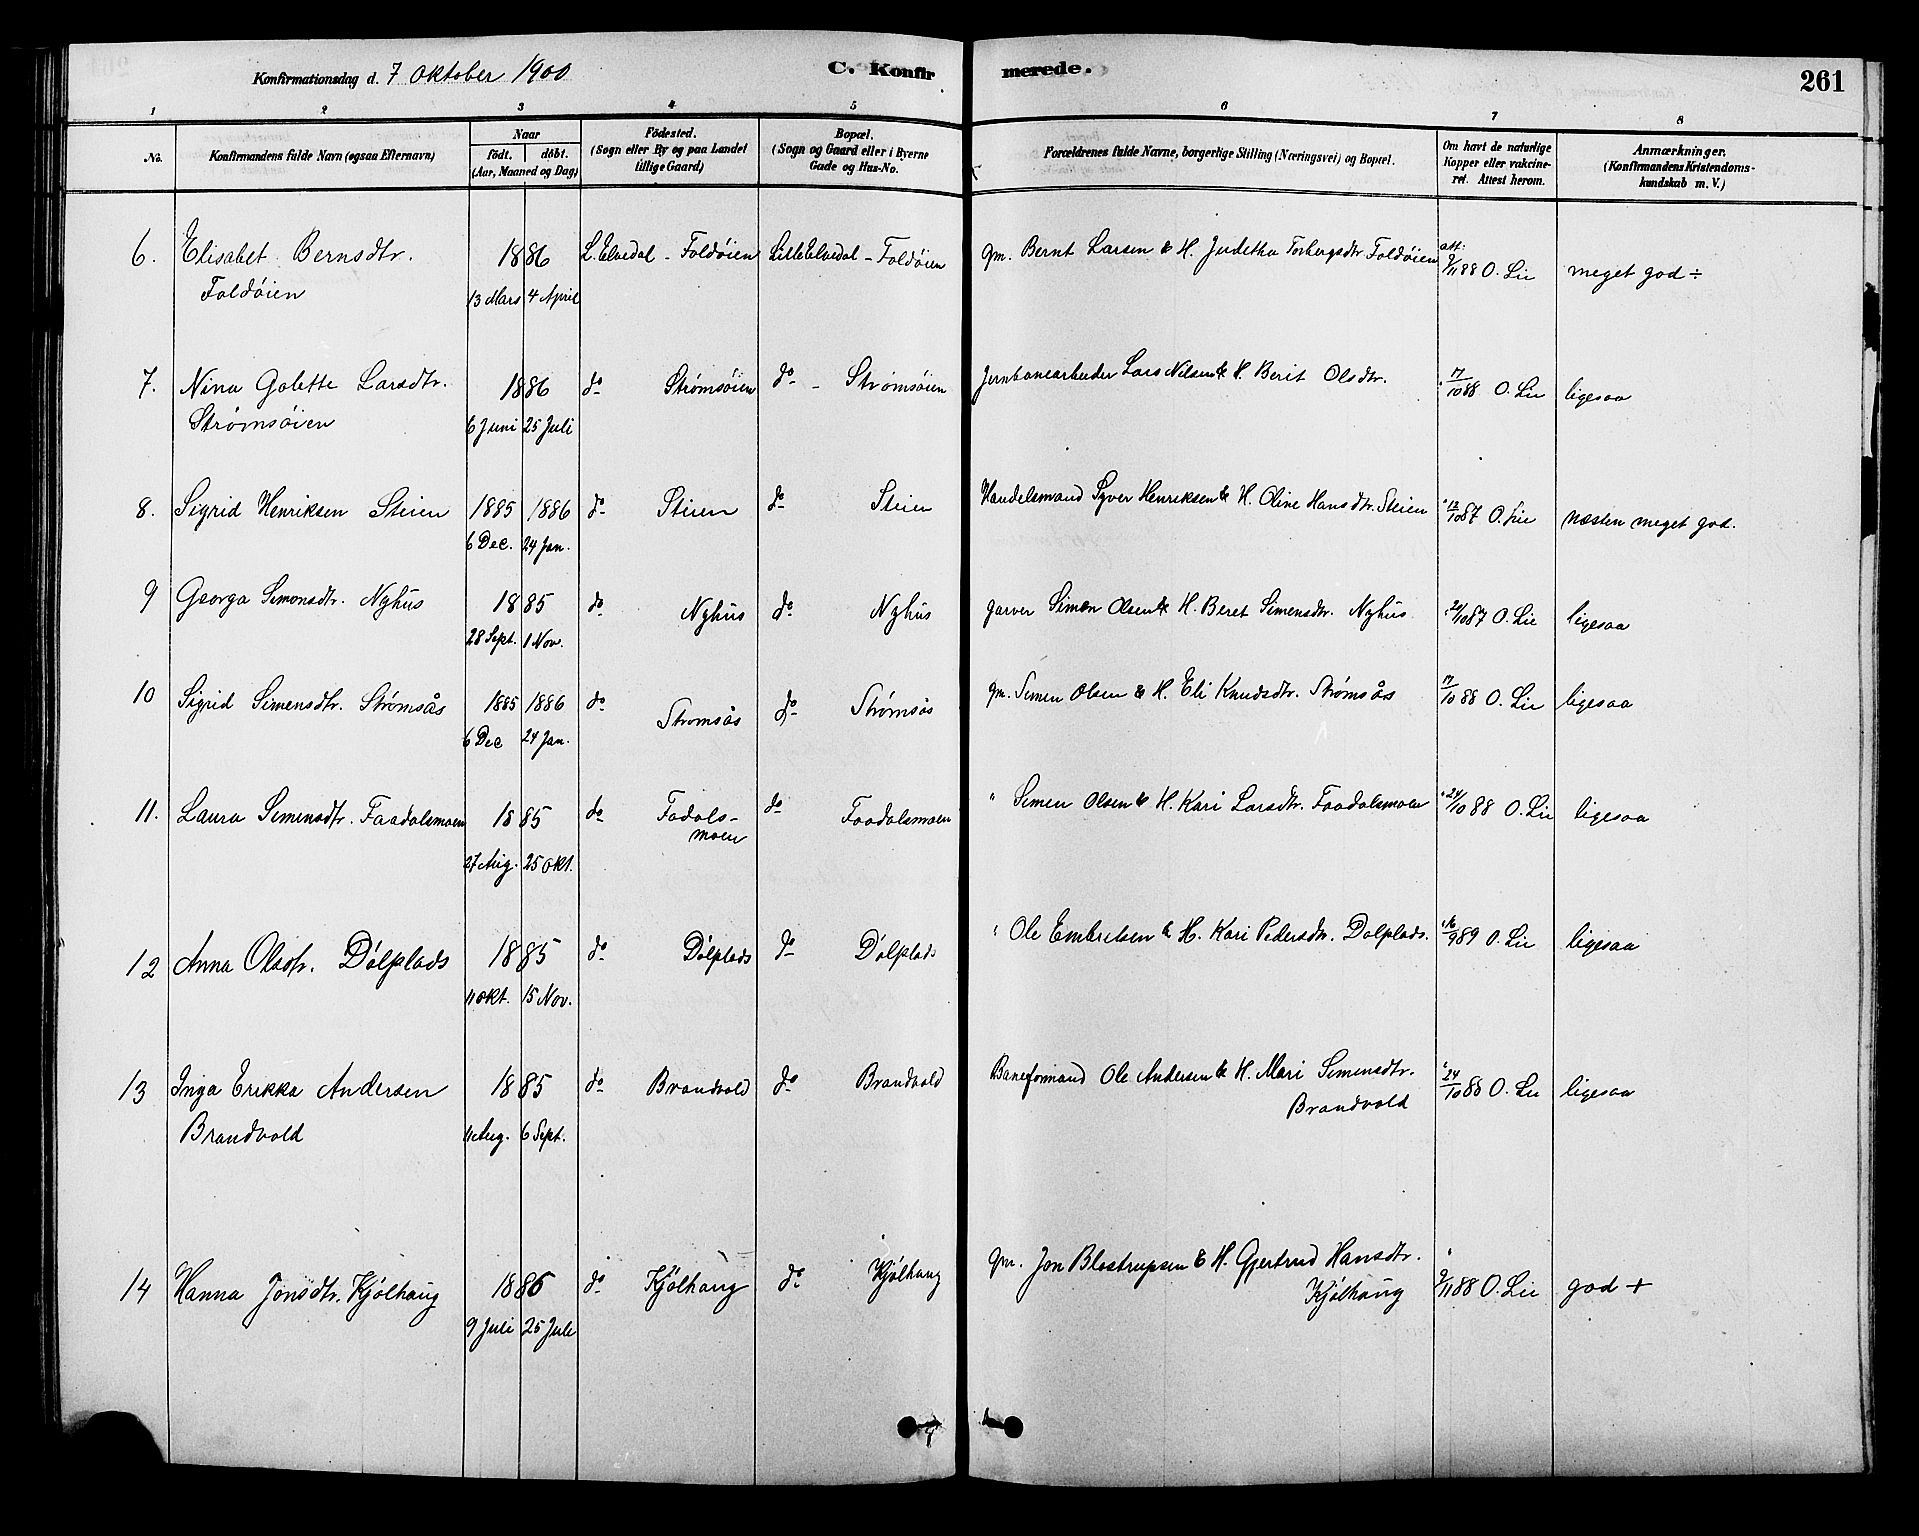 Konfirmationsdag d. 7 Oktober 1900 C. Konfirmerede. 261
1 2 3 4 5 6 7 8
No. Konfirmandens fulde Navn (ogsaa Efternavn) Naar födt. döbt. (Aar, Maaned og Dag) Födested. (Sogn eller By og paa Landet tillige Gaard) Bopæl. (Sogn og Gaard eller i Byerne Gade og Hus-No. Forældrenes fulde Navne, borgerlige Stilling (Næringsvei) og Bopæl. Om havt de naturlige Kopper eller vakcineret. Attest herom. Anmærkninger. (Konfirmandens Kristendomskundskab m. V.)
6. Elisabet Bernsdtr. 1886 L. Elvedal - Foldøien Lille Elvedal - Foldøien gm. Bernt Larsen & H. Judetha Torbergsdtr Foldøien att: 9/11 88 O. Lie meget god ÷
Foldøien 13 Mars 4 April
7. Nina Golette Larsdtr. 1886 do Strømsøien do - Strømsøien Jernbanearbeider Lars Nilsen & H. Berit Olsdtr. " 17/10 88 O. Lie ligesaa
Strømsøien 6 Juni 25 Juli
8. Sigrid Henriksen Steien 1885 1886 do Steien do Steien Handelsmand Syver Henriksen & H. Oline Hansdtr. Steien " 12/10 87 O. Lie næsten meget god.
6 Dec. 24 Jan.
9 Georga Simonsdtr. Nyhus 1885 do Nyhus do Nyhus garver Simen Olsen & H. Beret Simensdtr. Nyhus " 24/10 87 O. Lie ligesaa
28 Sept. 1 Nov.
10 Sigrid Simensdtr. Strømsås 1885 1886 do Strømsås do Strømsås gm. Simen Olsen & H. Eli Knudsdtr. Strømsårs 17/10 88 O. Lie ligesaa
6 Dec 24 Jan.
11. Laura Simensdtr. Faadalsmoen 1885 do Fadals- do Faadalsmoen " Simen Olsen & H. Kari Larsdtr. Faadalsmoen " 24/10 88 O. Lie ligesaa
moen
27 Aug. 25 Okt.
12 Anna Olsdtr. Dølplads 1885 do Dølplads do Dølplads " Ole Embretsen & H. Kari Pedersdtr. Dølplads. " 16/9 89 O. Lie ligesaa
11 Okt. 15 Nov.
13 Inga Erikka Andersen 1885 do Brandvold do Brandvold Baneformand Ole Andersen & H. Mari Simensdtr. " 24/10 88 O. Lie ligesaa
Brandvold 11 Aug. 6 Sept. Brandvold
14 Hanna Jonsdtr. Kjølhaug 1886 do Kjølhaug do Kjølhaug gm. Jon Blostrupsen & H. Gjertrud Hansdtr. " 9/11 88 O. Lie god +
9 Juli 25 Juli Kjølhaug